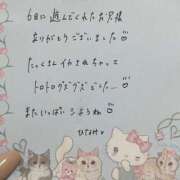 6日に遊んでくれたお兄様
ありがとうございました♡
たっくさんイカされちゃって
トロトログズグズでした…♡
またいっぱいシようね♡
ひなみ♥